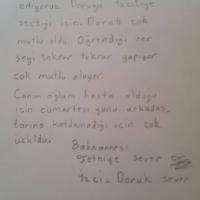 ediyoruz Doruğu izciliğe
seçtiği için. Doruk çok
mutlu oldu. Öğrendiği her
şeyi tekrar tekrar yapıyor
çok mutlu oluyor.
Canım oğlum hasta olduğu
için cumartesi günü arkadaş-
larına katılamadığı için çok
üzüldü.
Babaannesi
Fethiye sever
İzci- Doruk sever